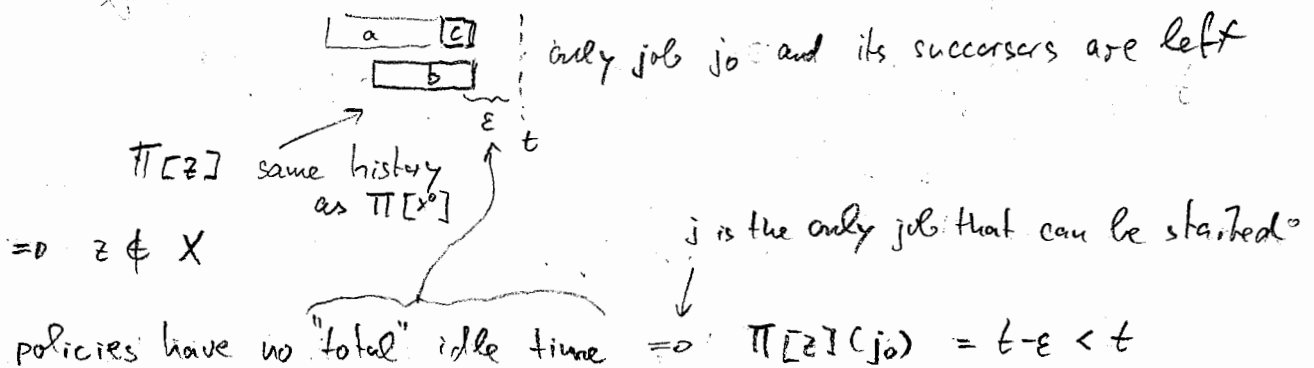 a c
only job j₀ and its successors are left
b
ε
t
Π[z] same history
as Π[x⁰]
j is the only job that can be started
⇒ z ∉ X
policies have no "total" idle time ⇒ Π[z](j₀) = t-ε < t